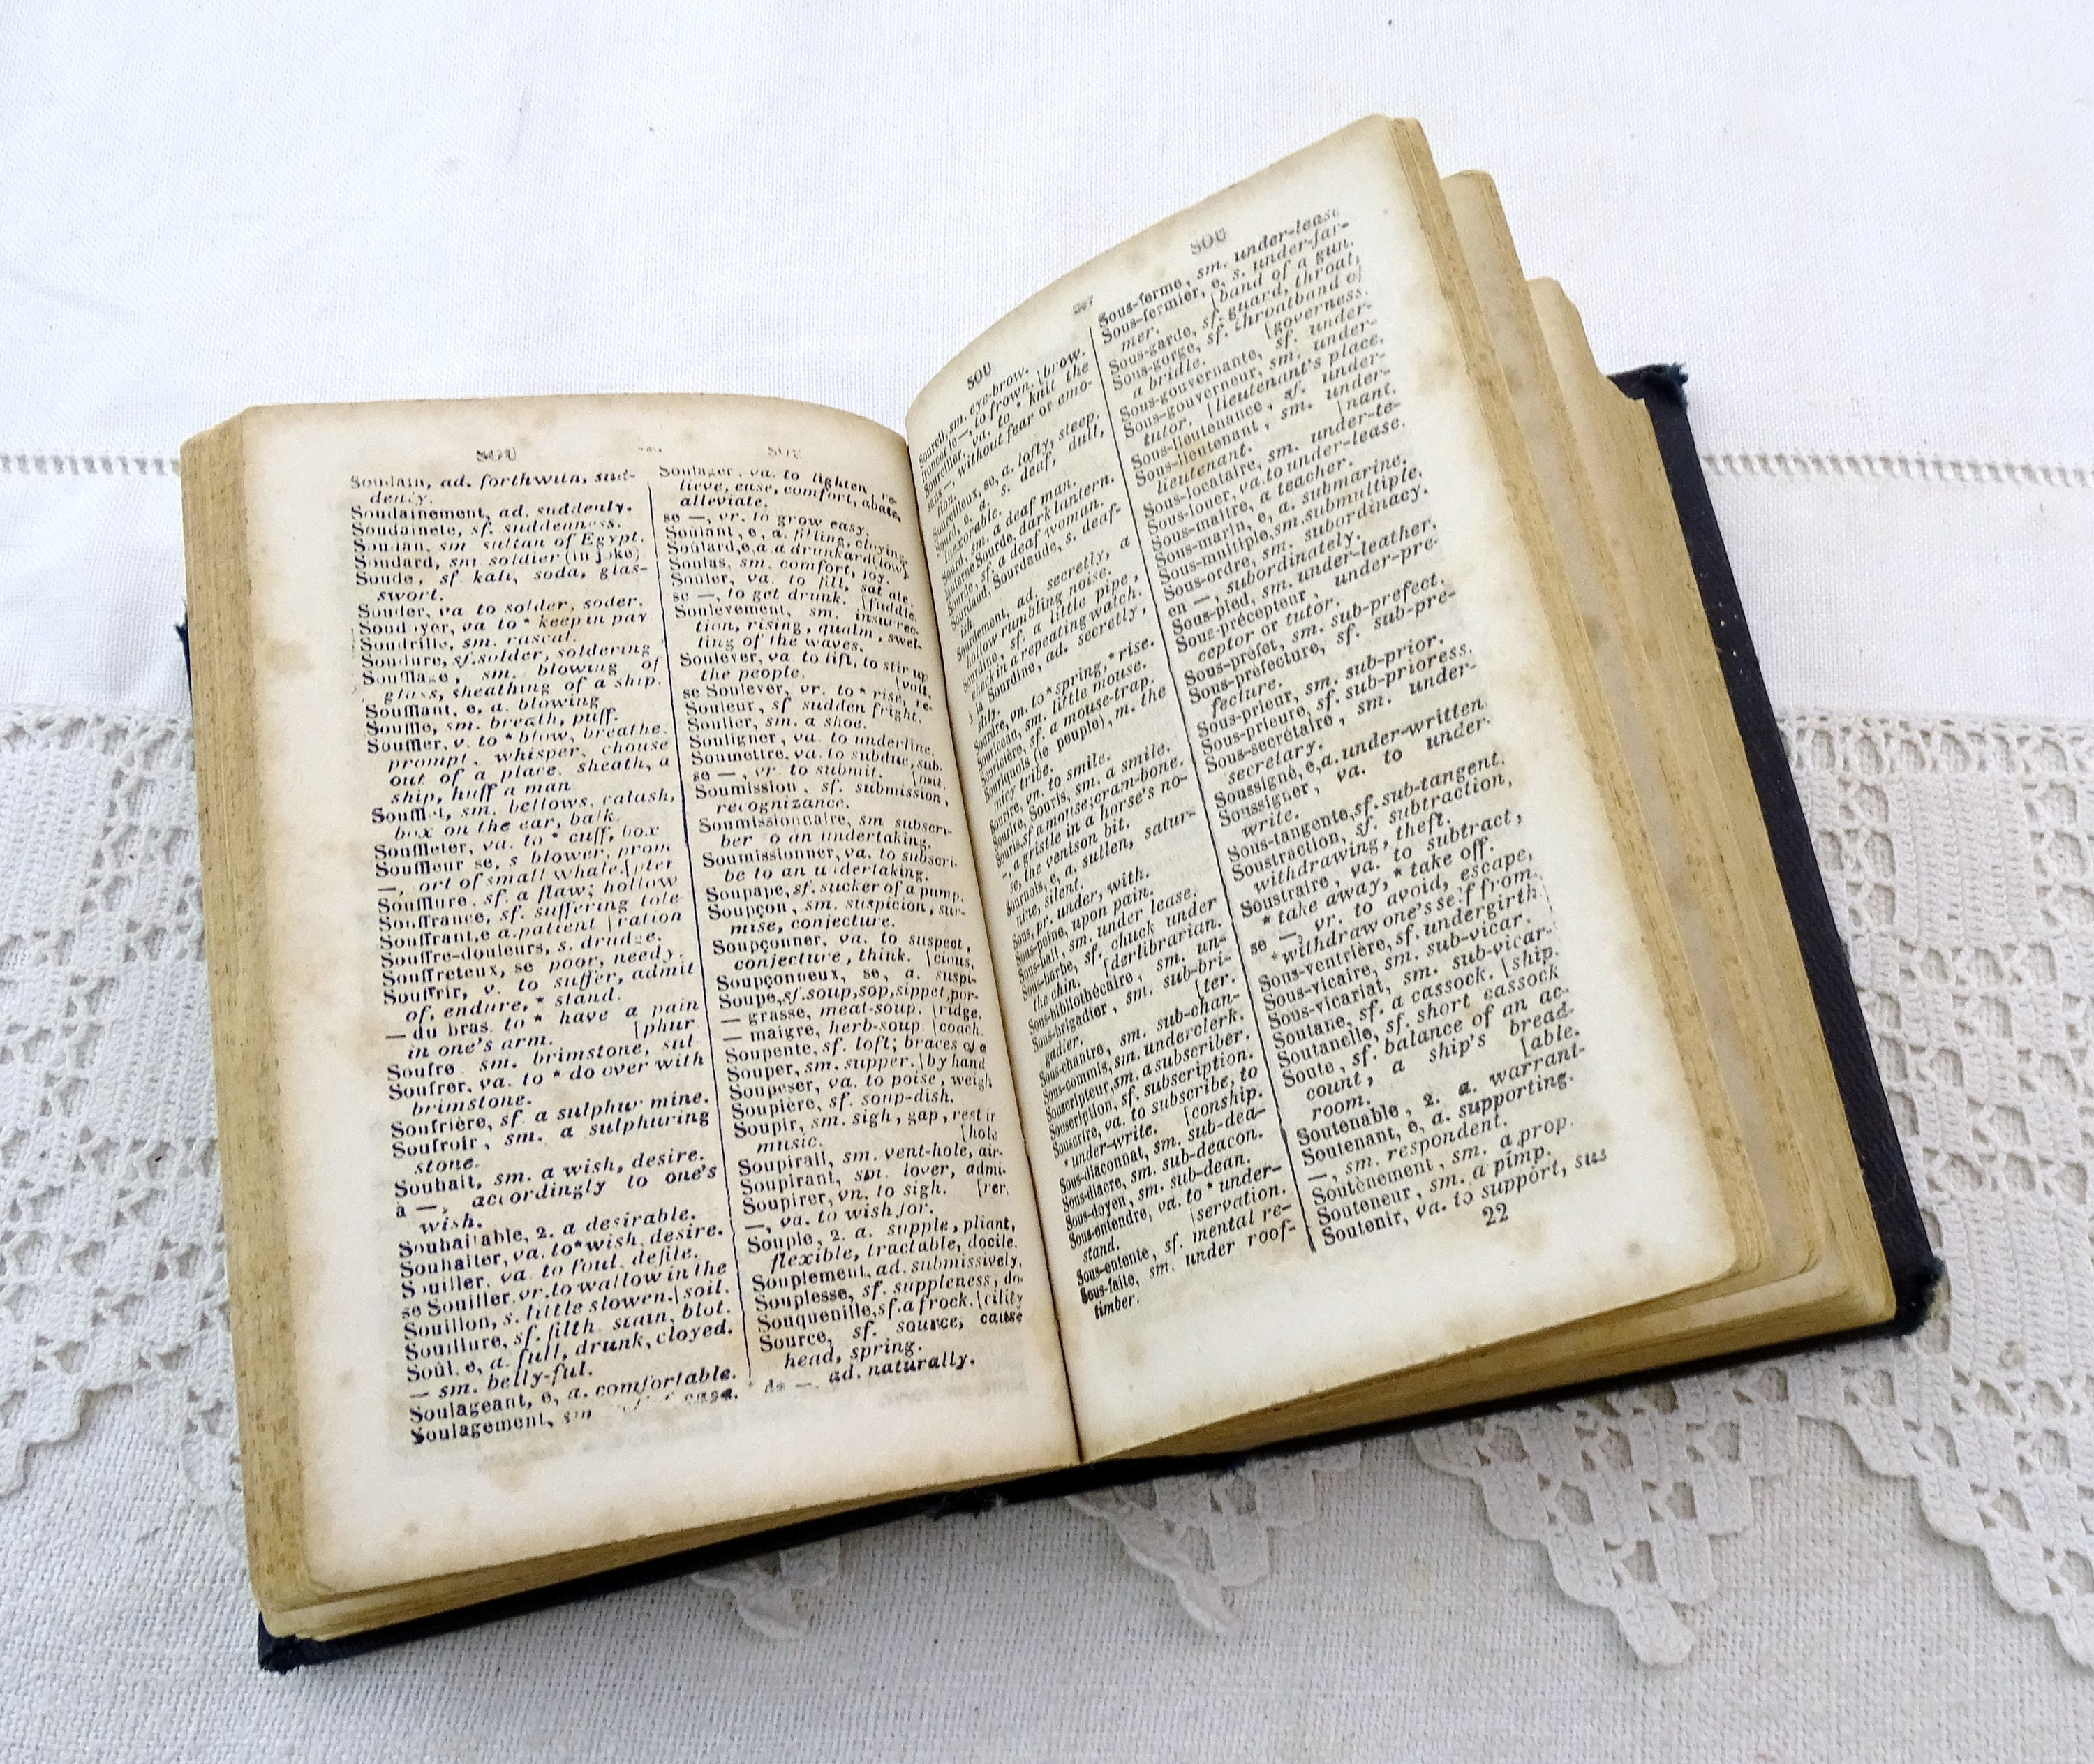 SOU
SOU
Soudain, ad. forthwith, sud-
denly.
Soudainement, ad. suddenly.
Soudaineté, sf. suddenness.
Soudan, sm sultan of Egypt.
Soudard, sm soldier (in joke)
Soude, sf. kali, soda, glas-
swort.
Souder, va to solder, soder.
Soudoyer, va to * keep in pay
Soudrille, sm. rascal.
Soudure, sf. solder, soldering
Soufflage, sm. blowing of
glass, sheathing of a ship.
Soufflant, e, a. blowing
Souffle, sm. breath, puff.
Souffler, v. to * blow, breathe.
prompt, whisper, chouse
out of a place. sheath, a
ship, huff a man
Soufflet, sm. bellows, calash,
box on the ear, balk.
Souffleter, va. to * cuff, box
Souffleur se, s blower, prom
—, sort of small whale. [pter
Soufflure, sf. a flaw; hollow
Souffrance, sf. suffering tole-
Souffrant, e a. patient [ration
Souffre-douleurs, s. drudge.
Souffreteux, se poor, needy.
Souffrir, v. to suffer, admit
of, endure, * stand.
— du bras to * have a pain
in one's arm. [phur
Soufre sm. brimstone, sul-
Soufrer, va. to * do over with
brimstone.
Soufrière, sf a sulphur mine.
Soufroir, sm. a sulphuring
stone.
Souhait, sm. a wish, desire.
à —, accordingly to one's
wish.
Souhaitable, 2. a desirable.
Souhaiter, va. to * wish, desire.
Souiller, va to foul, defile.
se Souiller vr. to wallow in the
Souillon, s. little sloven. [soil.
Souillure, sf. filth stain, blot.
Soûl, e, a. full, drunk, cloyed.
— sm. belly-ful.
Soulageant, e, a. comfortable.
Soulagement, sm ease.
Soulager, va. to lighten, re-
lieve, ease, comfort, abate,
alleviate.
se —, vr. to grow easy.
Soulant, e, a. filling, cloying.
Soulard, e, a. a drunkard (low).
Soulas, sm. comfort, joy.
Souler, va. to fill, satiate,
se —, to get drunk. [fuddle.
Soulèvement, sm. insurrec-
tion, rising, qualm, swel-
ling of the waves.
Soulever, va. to lift, to stir up
the people. [volt.
se Soulever, vr. to * rise, re-
Souleur, sf sudden fright.
Soulier, sm. a shoe.
Souligner, va. to underline.
Soumettre, va. to subdue, sub-
se —, vr. to submit. [mit.
Soumission, sf. submission,
recognizance.
Soumissionnaire, sm subscri-
ber to an undertaking.
Soumissionner, va. to subscri-
be to an undertaking.
Soupape, sf. sucker of a pump.
Soupçon, sm. suspicion, sur-
mise, conjecture.
Soupçonner, va. to suspect,
conjecture, think. [cious.
Soupçonneux, se, a. suspi-
Soupe, sf. soup, sop, sippet, por-
— grasse, meat-soup. [ridge.
— maigre, herb-soup. [coach
Soupente, sf. loft; braces of a
Souper, sm. supper. [by hand
Soupeser, va. to poise, weigh
Soupière, sf. soup-dish.
Soupir, sm. sigh, gap, rest in
music. [hole
Soupirail, sm. vent-hole, air-
Soupirant, sm. lover, admi-
Soupirer, vn. to sigh. [rer.
—, va. to wish for.
Souple, 2. a. supple, pliant,
flexible, tractable, docile.
Souplement, ad. submissively.
Souplesse, sf. suppleness, do-
Souquenille, sf. a frock. [cility
Source, sf. source, cause
head, spring.
de —, ad. naturally.
SOU
SOU
Sourcil, sm. eye-brow.
froncer le —, to frown. [brow.
Sourciller, va. to * knit the
sans —, without fear or emo-
tion.
Sourcilleux, se, a. lofty, steep.
Sourd, e, a. s. deaf, dull,
inexorable.
Sourd, sm. a deaf man.
lanterne Sourde, dark lantern.
Sourde, sf. a deaf woman.
Sourdaud, Sourdaude, s. deaf-
ish.
Sourdement, ad. secretly, a
hollow rumbling noise.
Sourdine, sf. a little pipe,
check in a repeating watch.
à la Sourdine, ad. secretly,
slily.
Sourdre, vn. to * spring, * rise.
Souriceau, sm. little mouse.
Souricière, sf. a mouse-trap.
Souriquois (le peuple), m. the
micy tribe.
Sourire, vn. to smile.
Sourire, Souris, sm. a smile.
Souris, sf a mouse; cram-bone.
—, a gristle in a horse's no-
se, the venison bit.
Sournois, e, a. sullen, satur-
nine, silent.
Sous, pr. under, with.
Sous-peine, upon pain.
Sous-bail, sm. under lease.
Sous-barbe, sf. chuck under
the chin. [derlibrarian.
Sous-bibliothécaire, sm. un-
Sous-brigadier, sm. sub-bri-
gadier. [ter.
Sous-chantre, sm. sub-chan-
Sous-commis, sm. underclerk.
Souscripteur, sm. a subscriber.
Souscription, sf. subscription.
Souscrire, va. to subscribe, to
* under-write. [conship.
Sous-diaconnat, sm. sub-dea-
Sous-diacre, sm. sub-deacon.
Sous-doyen, sm. sub-dean.
Sous-entendre, va. to * under-
stand. [servation.
Sous-entente, sf. mental re-
Sous-faîte, sm. under roof-
timber.
Sous-ferme, sm. under-lease
Sous-fermier, e, s. under-far-
mer. [band of a gun.
Sous-garde, sf. guard, throat,
Sous-gorge, sf. throatband of
a bridle. [governess.
Sous-gouvernante, sf. under-
Sous-gouverneur, sm. under-
tutor. [lieutenant's place.
Sous-lieutenance, sf. under-
Sous-lieutenant, sm. under-
lieutenant. [nant.
Sous-locataire, sm. under-te-
Sous-louer, va. to under-lease.
Sous-maître, a teacher.
Sous-marin, e, a. submarine.
Sous-multiple, sm. submultiple.
Sous-ordre, sm. subordinacy.
en —, subordinately.
Sous-pied, sm. under-leather.
Sous-précepteur, under-pre-
ceptor or tutor.
Sous-préfet, sm. sub-prefect.
Sous-préfecture, sf. sub-pre-
fecture.
Sous-prieur, sm. sub-prior.
Sous-prieure, sf. sub-prioress.
Sous-secrétaire, sm. under-
secretary.
Soussigné, e, a. under-written
Soussigner, va. to under-
write.
Sous-tangente, sf. sub-tangent.
Soustraction, sf. subtraction,
withdrawing, theft.
Soustraire, va. to subtract,
* take away, * take off.
se —, vr. to avoid, escape,
* withdraw one's self from.
Sous-ventrière, sf. undergirth
Sous-vicaire, sm. sub-vicar.
Sous-vicariat, sm. sub-vicar-
Soutane, sf. a cassock. [ship.
Soutanelle, sf. short cassock
Soute, sf. balance of an ac-
count, a ship's bread-
room. [able.
Soutenable, 2. a. warrant-
Soutenant, e, a. supporting.
—, sm. respondent.
Soutènement, sm. a prop.
Souteneur, sm. a pimp.
Soutenir, va. to support, sus
22